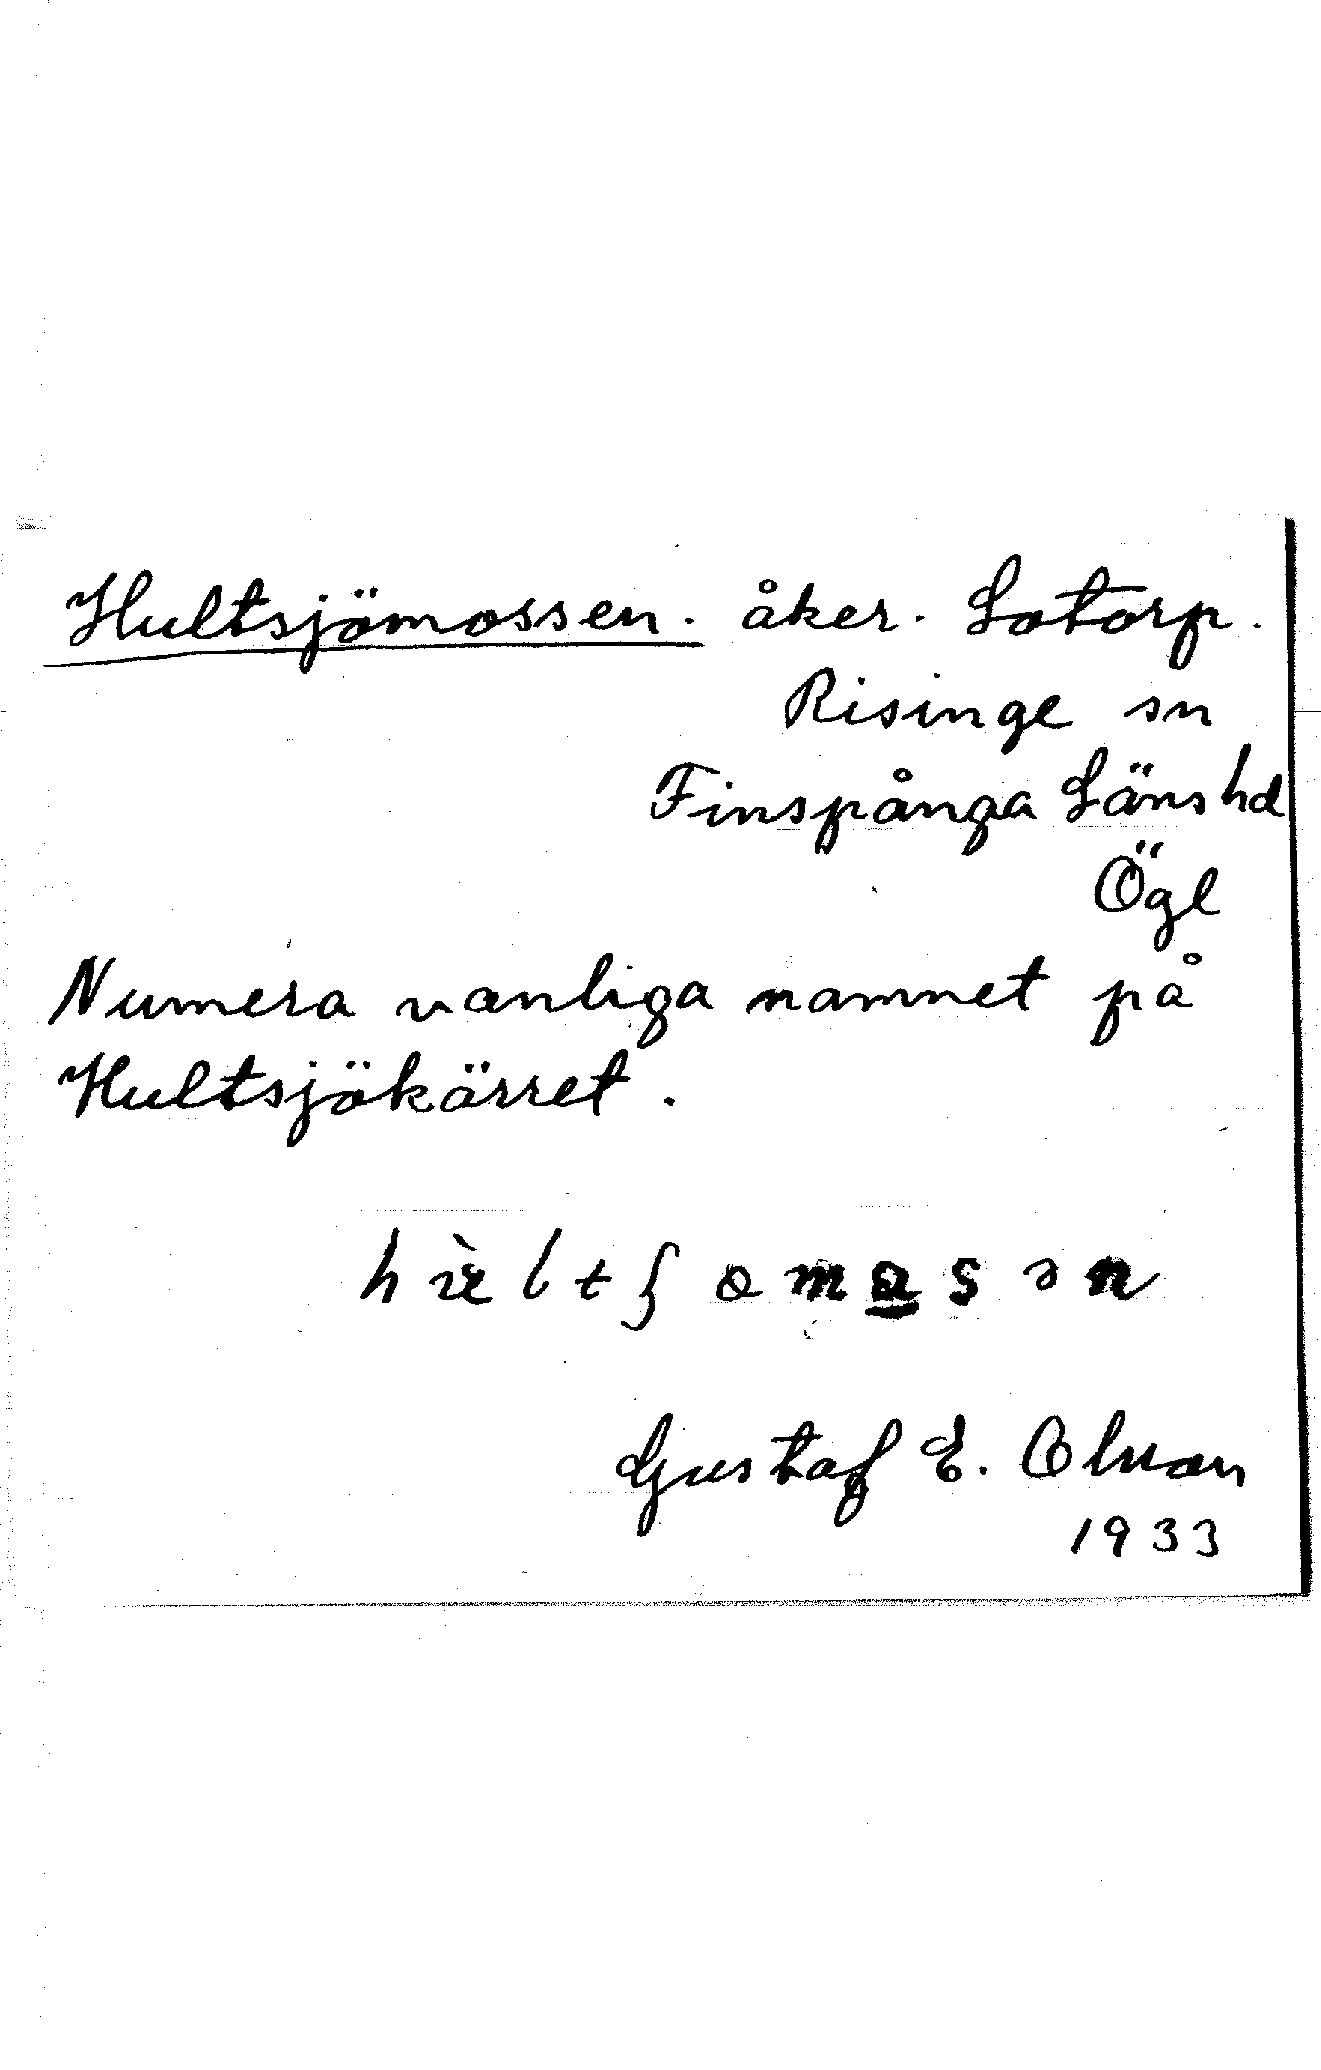 Hultsjömossen. åker. Lotorp.
Risinge sn
Finspånga Läns hd
Ögl
Numera vanliga namnet på
Hultsjökärret.
Gustaf E. Olsson
1933